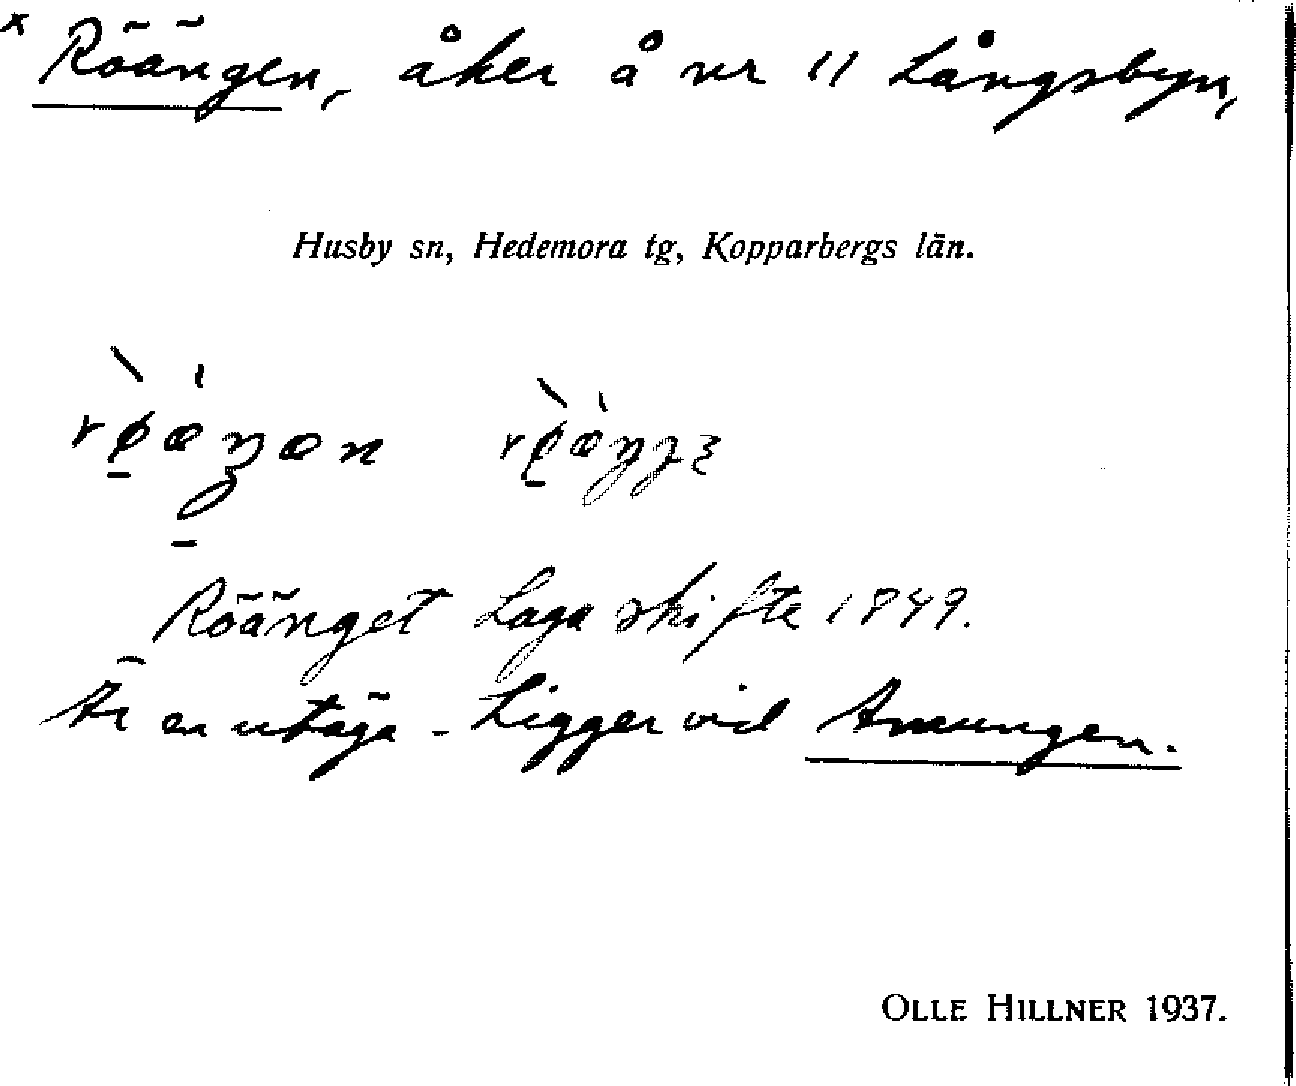 × Röängen, åker å nr 11 Långsbyn,
Husby sn, Hedemora tg, Kopparbergs län.
Röänget Laga skifte 1849.
Är en utäga - Ligger vid Amungen.
OLLE HILLNER 1937.